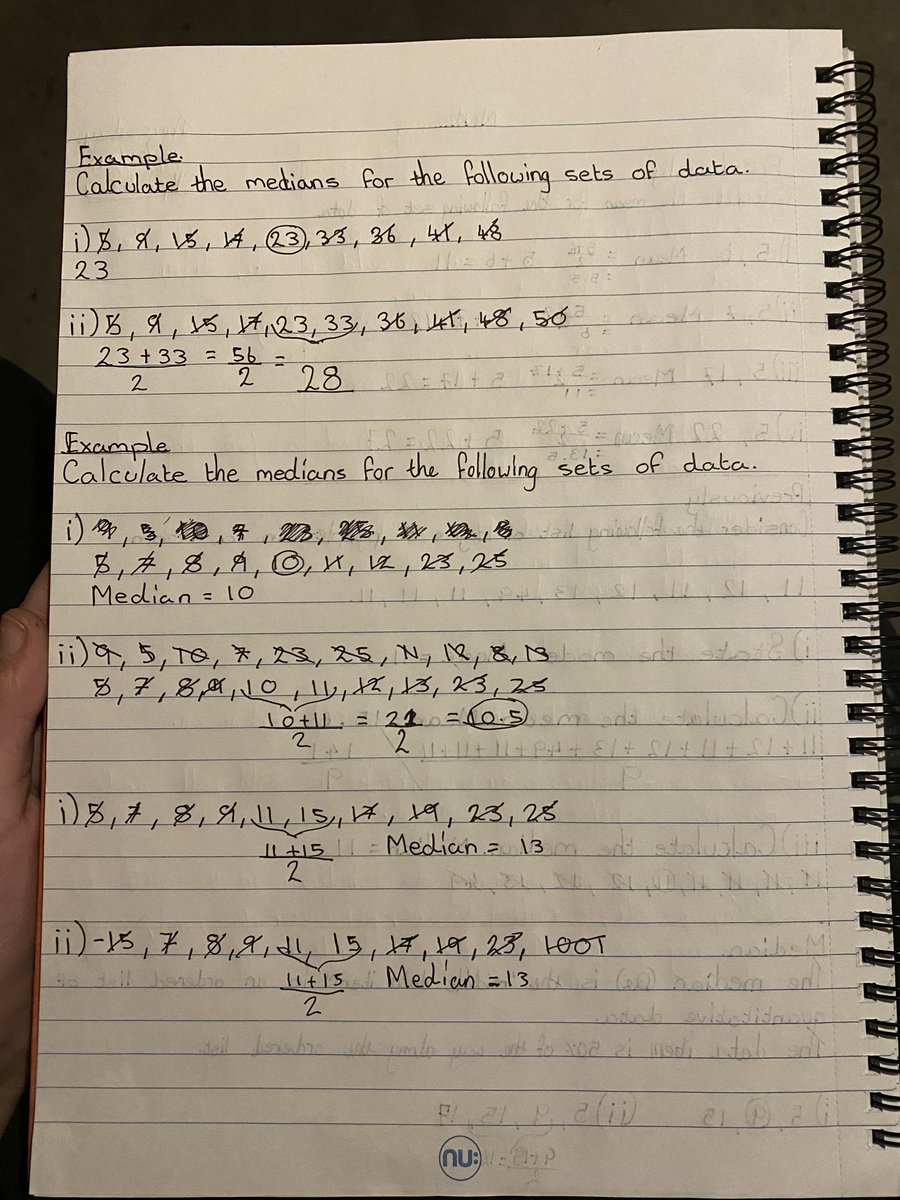 Example.
Calculate the medians for the following sets of data.
i) 5, 9, 15, 17, 23, 33, 36, 41, 48
23
ii) 5, 9, 15, 17, 23, 33, 36, 41, 48, 50
23 + 33 / 2 = 56 / 2 = 28
Example
Calculate the medians for the following sets of data.
i)
5, 7, 8, 9, 10, 11, 12, 23, 25
Median = 10
ii) 9, 5, 10, 7, 23, 25, 11, 12, 8, 13
5, 7, 8, 9, 10, 11, 12, 13, 23, 25
10 + 11 / 2 = 21 / 2 = 10.5
i) 5, 7, 8, 9, 11, 15, 17, 19, 23, 25
11 + 15 / 2 Median = 13
ii) -15, 7, 8, 9, 11, 15, 17, 19, 23, 1001
11 + 15 / 2 Median = 13
nu: